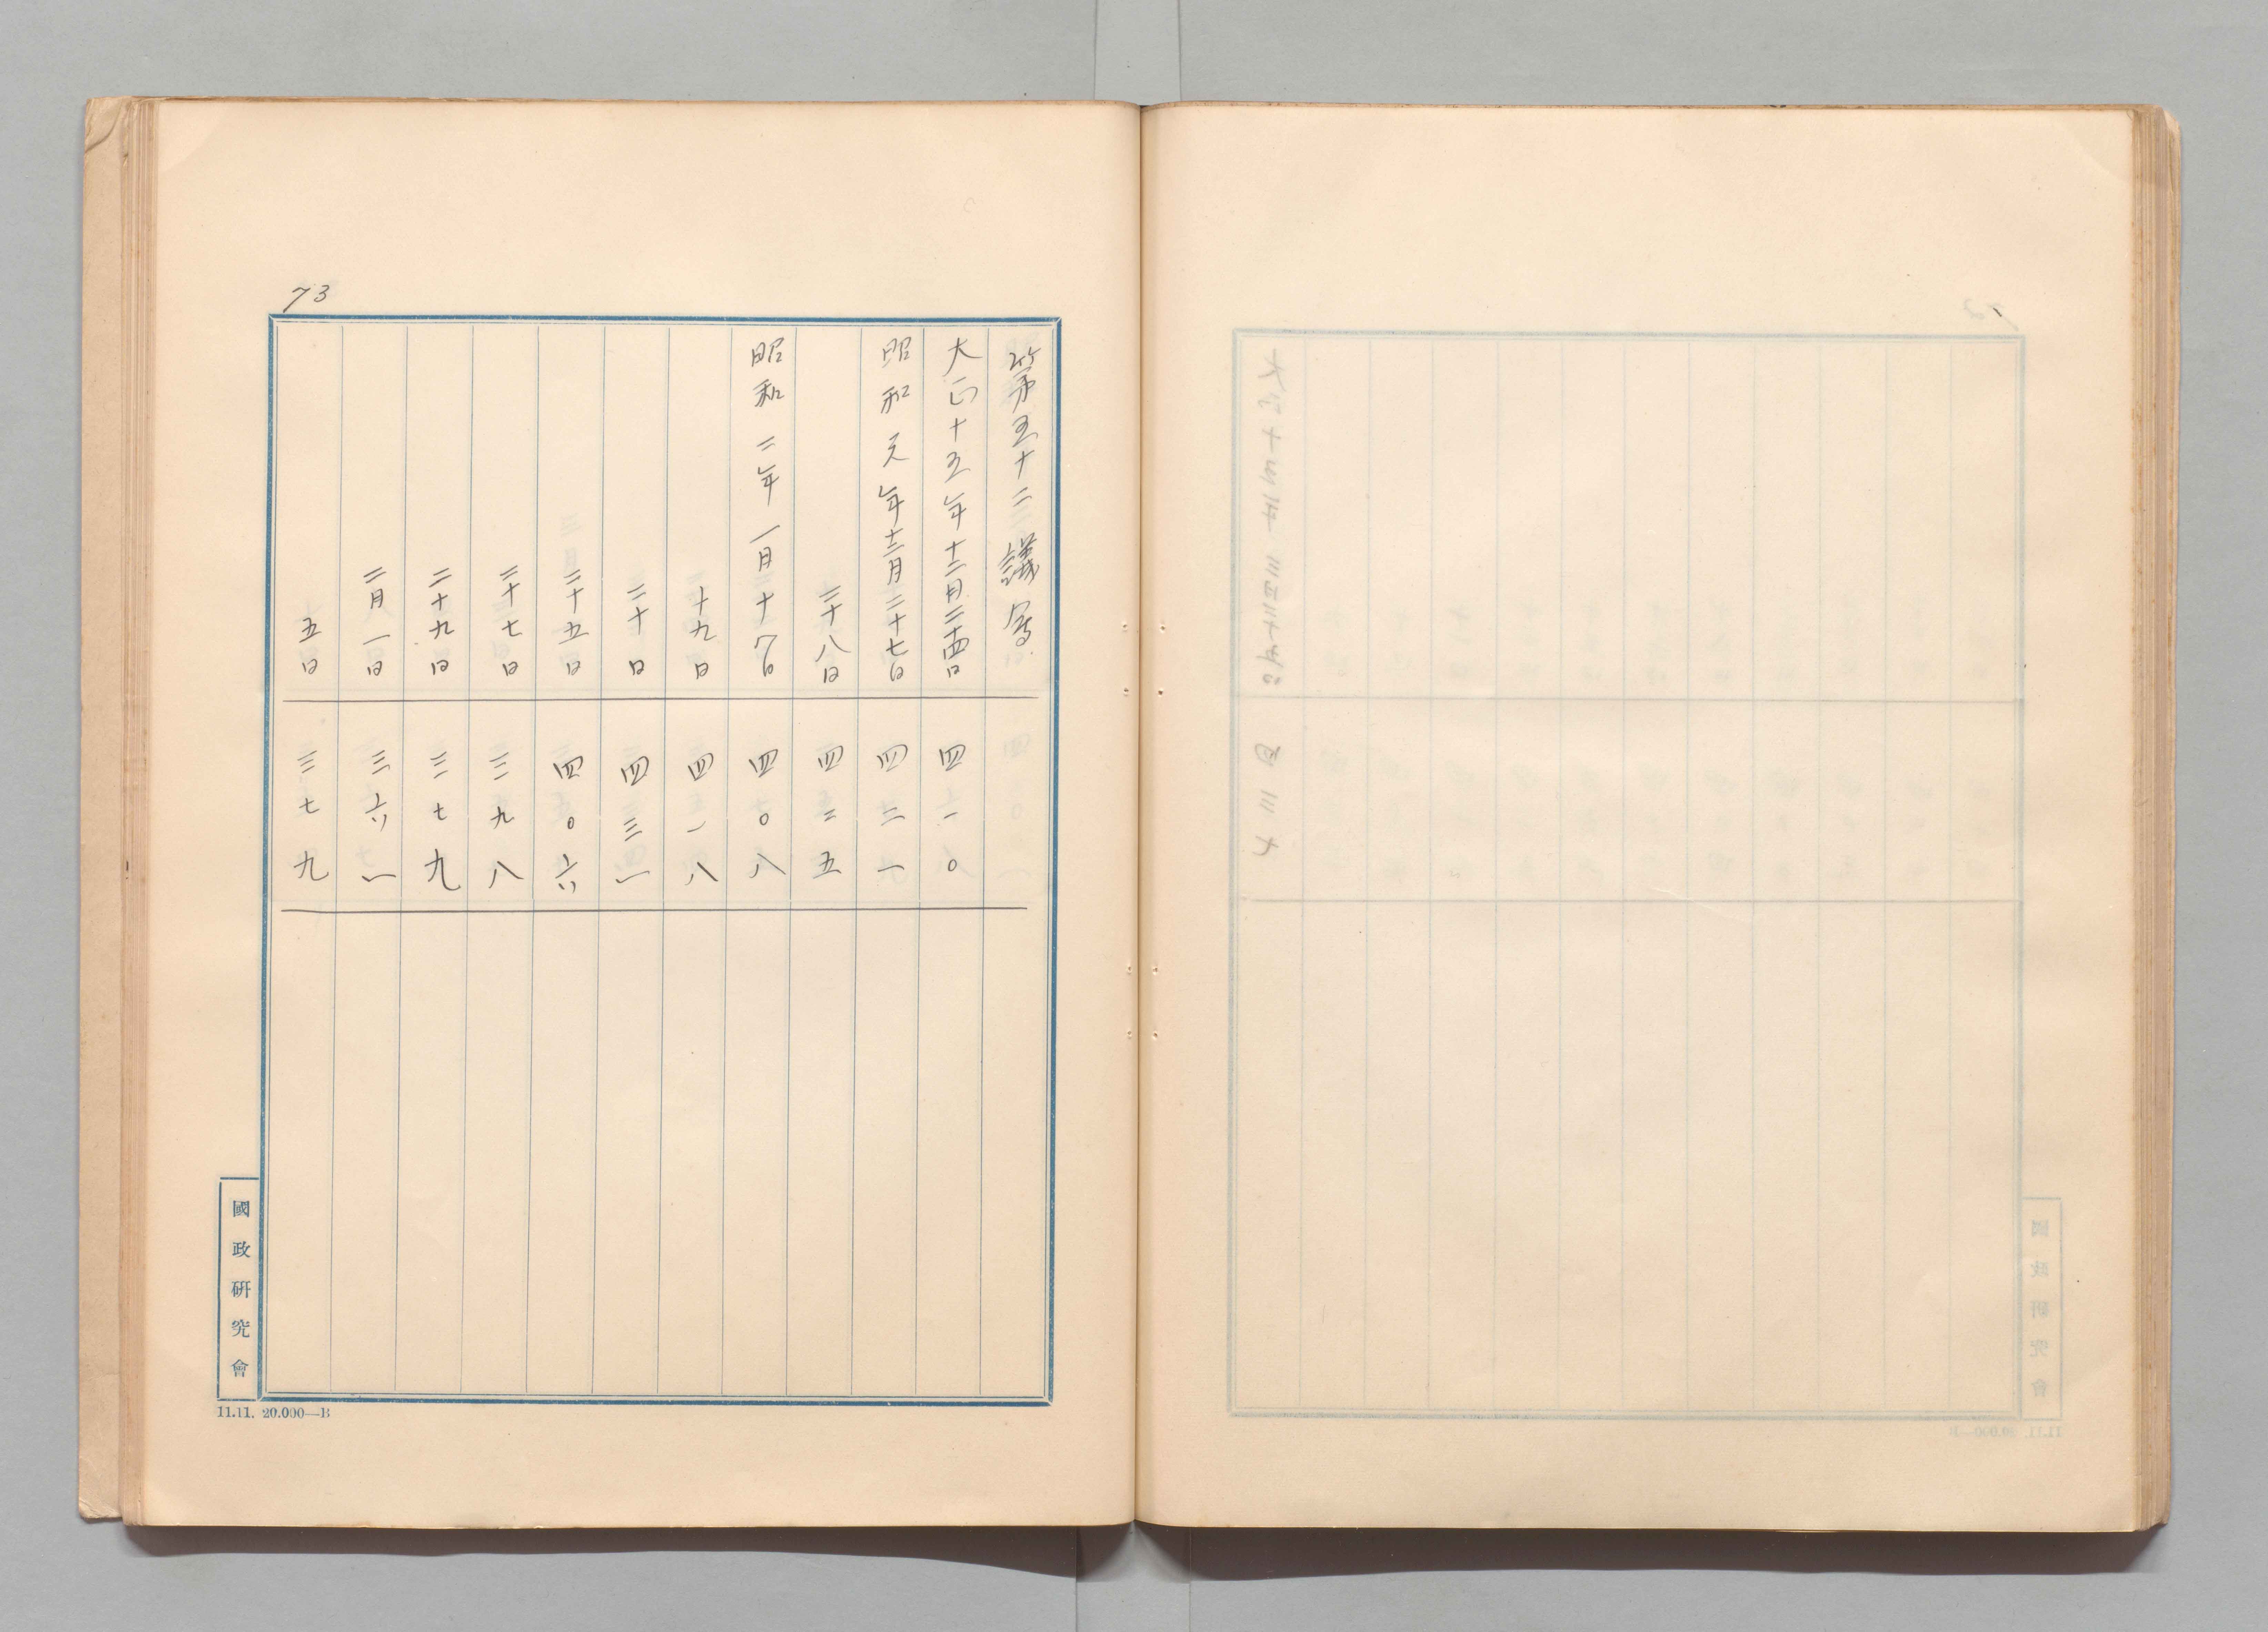 73
第五十二議會
大正十五年十二月二十四日 四一〇
昭和元年十二月二十七日 四二一
二十八日 四二五
昭和二年一月十八日 四〇八
十九日 四一八
二十日 四三一
二十五日 四〇六
二十七日 三九八
二十九日 三七九
二月一日 三六一
五日 三七九
國政研究會
11.11. 20.000—B